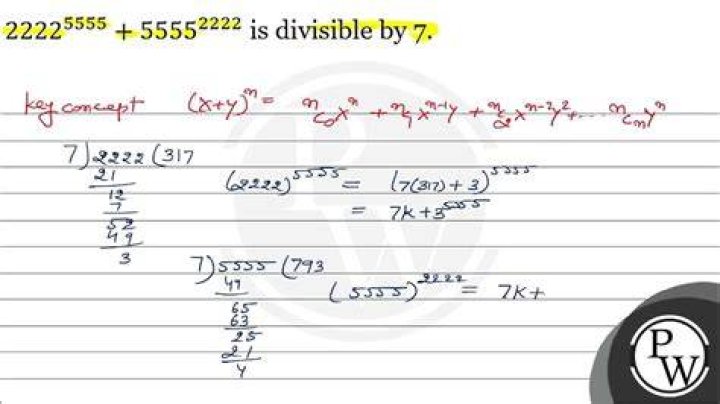 2222⁵⁵⁵⁵ + 5555²²²² is divisible by 7.
key concept (x+y)ⁿ = ⁿC₀xⁿ + ⁿC₁xⁿ⁻¹y + ⁿC₂xⁿ⁻²y² + .... ⁿCₙyⁿ
7)2222(317
21
12
7
52
49
3
(2222)⁵⁵⁵⁵ = (7(317) + 3)⁵⁵⁵⁵
= 7K + 3⁵⁵⁵⁵
7)5555(793
49
65
63
25
21
4
(5555)²²²² = 7K +
PW